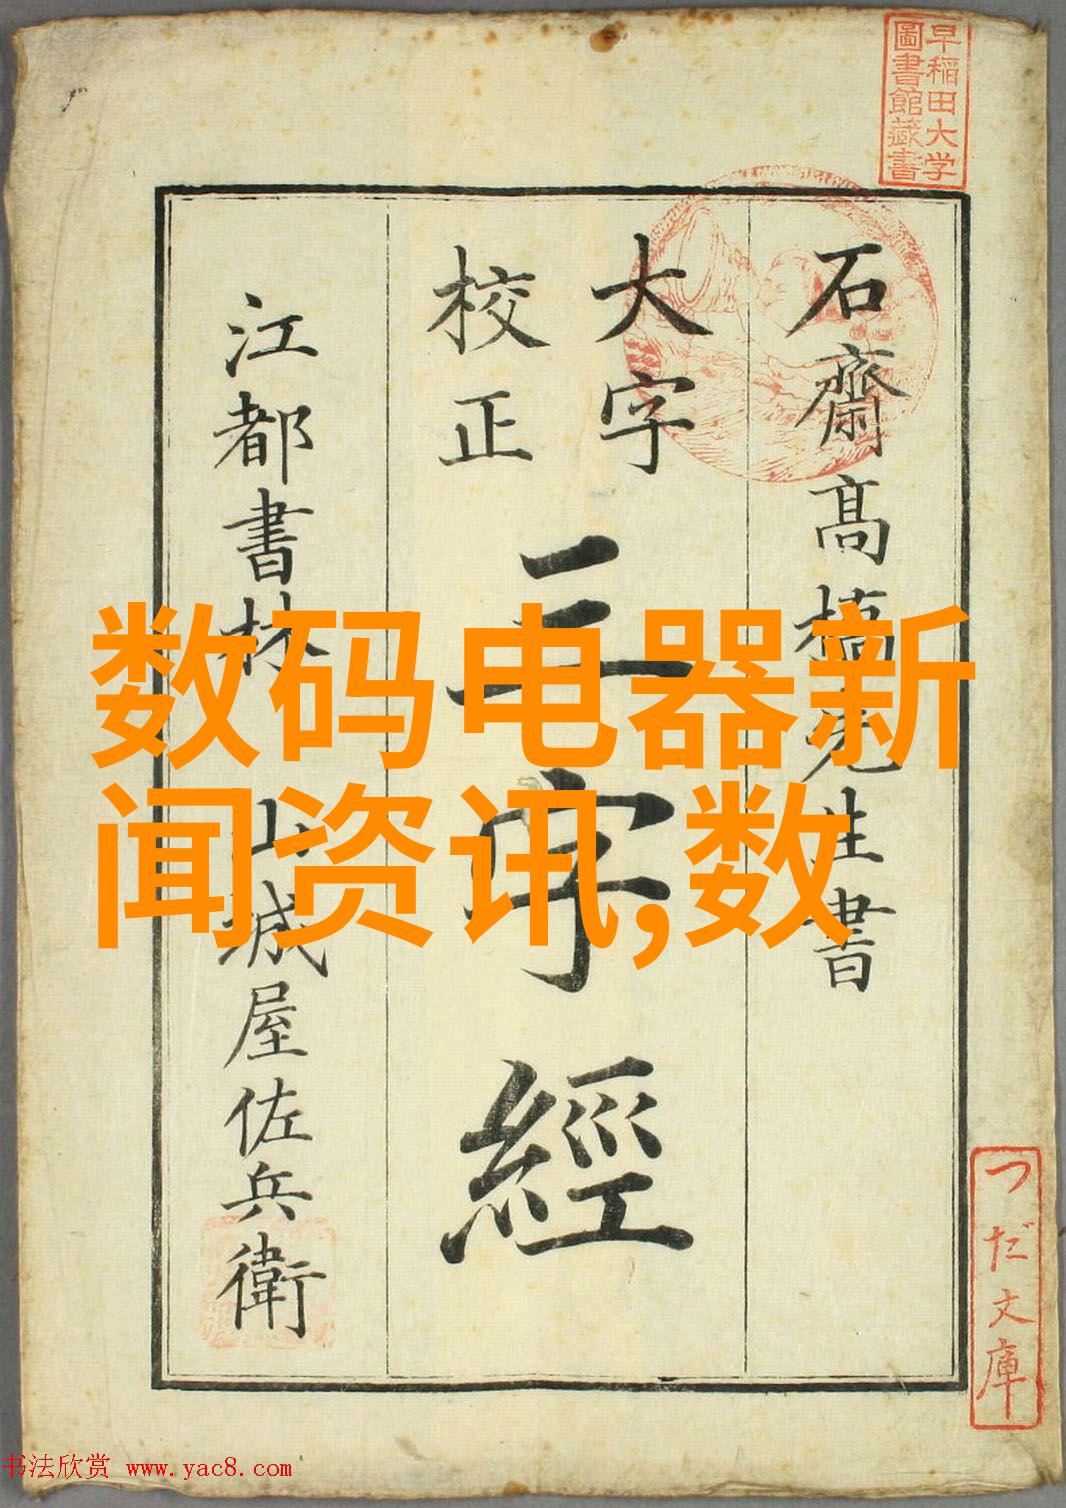 早稲田大学
圖書館藏書
石齋髙橋先生書
大字
校正
三字經
江都書林 山城屋佐兵衛
数码电器新
闻资讯,数
つだ文庫
书法欣赏 www.yac8.com